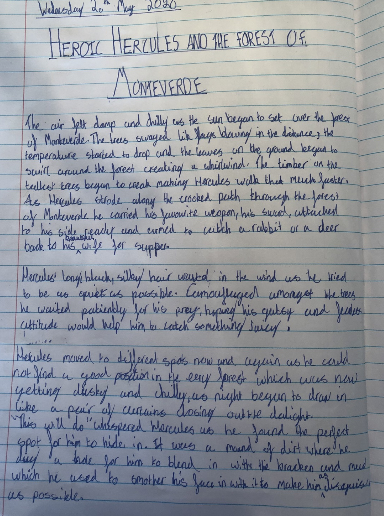 Wednesday 20th May 2020
HEROIC HERCULES AND THE FOREST OF
MONTEVERDE
The air felt damp and chilly as the sun began to set over the forest
of Monteverde. The trees swayed like flags blowing in the distance, the
temperature started to drop and the leaves on the ground began to
swirl around the forest creating a whirlwind. The timber on the
tallest trees began to creak making Hercules walk that much faster.
As Hercules strode along the crooked path through the forest
of Monteverde he carried his favourite weapon, his sword, attached
to his side ready and aimed to catch a rabbit or a deer
back to his wife for supper.
Hercules' long, black, silky hair in the wind as he tried
to be as quiet as possible. Camouflaged amongst the trees
he waited patiently for his prey, hoping his gutsy and fearless
attitude would help him to catch something juicy.
Hercules moved to different spots now and again as he could
not find a good position in the eery forest which was now
getting dusky and chilly, as night began to draw in
like a pair of curtains closing out the daylight.
"This will do" whispered Hercules as he found the perfect
spot for him to hide in. It was a mound of dirt where he
a hole for him to blend in with the bracken and mud
which he used to smother his face in with it to make him as
as possible.